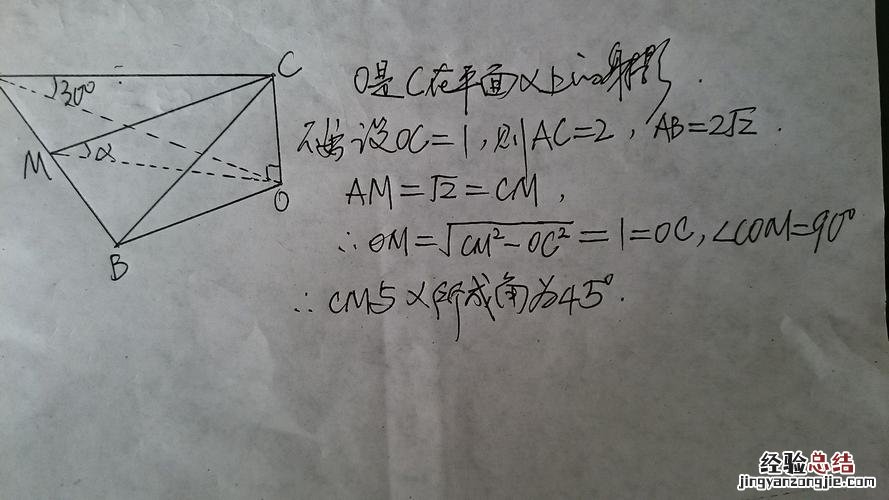 C
30°
M
α
O
B
O是C在平面α上的射影.
不妨设OC=1,则AC=2,AB=2√2.
AM=√2=CM,
∴OM=√CM²-OC²=1=OC,∠COM=90°
∴CM与α所成角为45°.
经验总结
jingyanzongjie.com